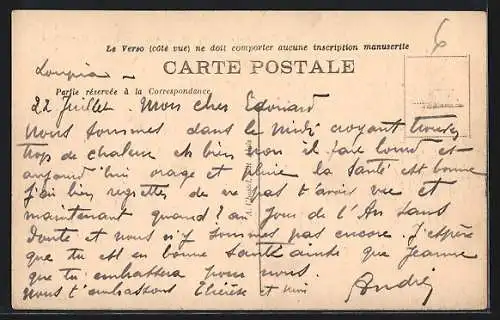 Le Verso (côté vue) ne doit comporter aucune inscription manuscrite
6
CARTE POSTALE
Loupia
Partie réservée à la Correspondance
22 Juillet. Mon cher Edouard
Nous sommes dans le Midi croyant trouver
trop de chaleur eh bien non il fait lourd et
aujourd'hui orage et pluie la santé est bonne
j'ai bien regretter de ne pas t'avoir vue et
maintenant quand? au Jour de l'An sans
doute et nous n'y sommes pas encore. J'espère
que tu est en bonne santé ainsi que Jeanne
que tu embrassera pour nous.
nous t'embrassons et moi
André